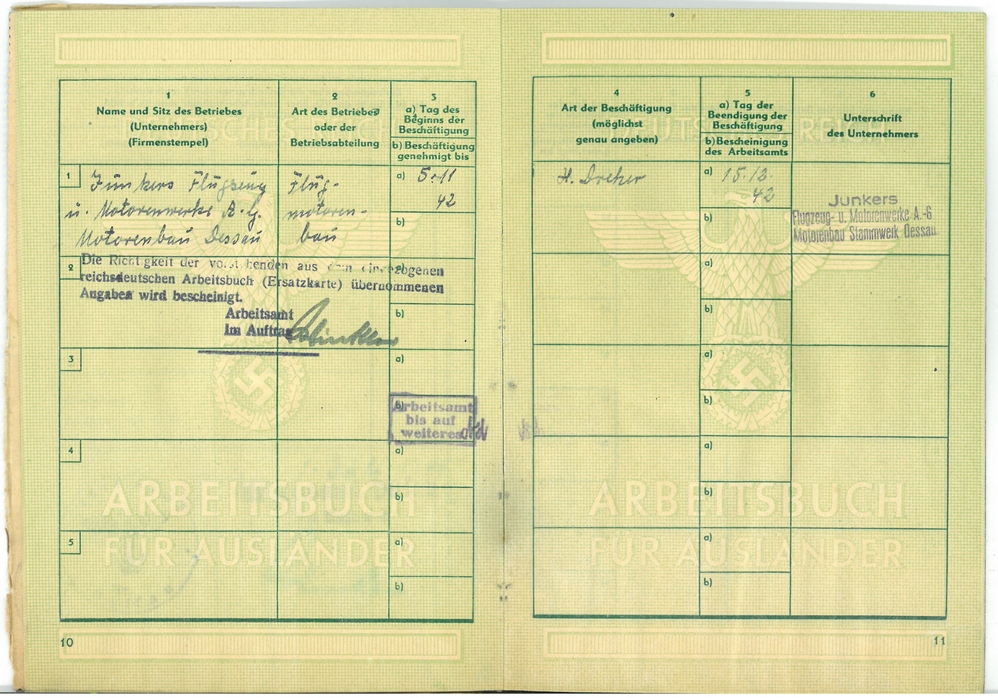 1
Name und Sitz des Betriebes
(Unternehmers)
(Firmenstempel)
2
Art des Betriebes
oder der
Betriebsabteilung
3
a) Tag des
Beginns der
Beschäftigung
b) Beschäftigung
genehmigt bis
1
Junkers Flugzeug
u. Motorenwerke A.G.
Motorenbau Dessau
Flug-
motoren-
bau
a) 5.11
42
b)
2
a)
Die Richtigkeit der vorstehenden aus dem eingezogenen
reichsdeutschen Arbeitsbuch (Ersatzkarte) übernommenen
Angaben wird bescheinigt.
Arbeitsamt
Im Auftrag
b)
3
a)
b)
Arbeitsamt
bis auf
weiteres
4
a)
b)
ARBEITSBUCH
5
a)
FÜR AUSLÄNDER
b)
10
4
Art der Beschäftigung
(möglichst
genau angeben)
5
a) Tag der
Beendigung der
Beschäftigung
b) Bescheinigung
des Arbeitsamts
6
Unterschrift
des Unternehmers
DEUTSCHES REICH
H. Dreher
a) 15.12.
42
b)
Junkers
Flugzeug- u. Motorenwerke A.-G
Motorenbau Stammwerk Dessau
a)
b)
a)
b)
a)
b)
ARBEITSBUCH
a)
FÜR AUSLÄNDER
b)
11